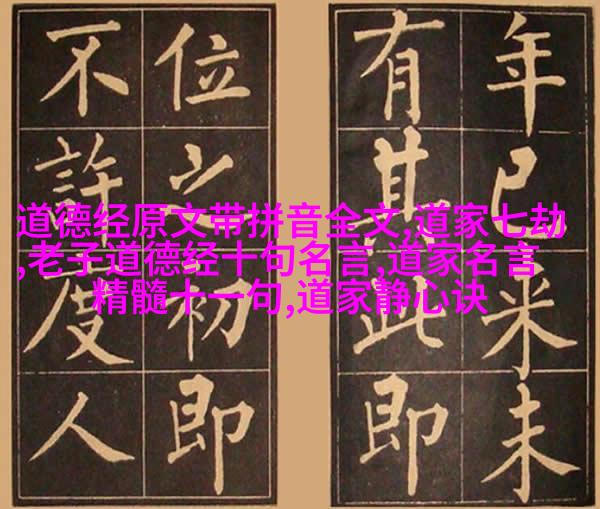 年已米未
有其此即
位之初即
不許度人
道德经原文带拼音全文,道家七劫
,老子道德经十句名言,道家名言
精髓十一句,道家静心诀